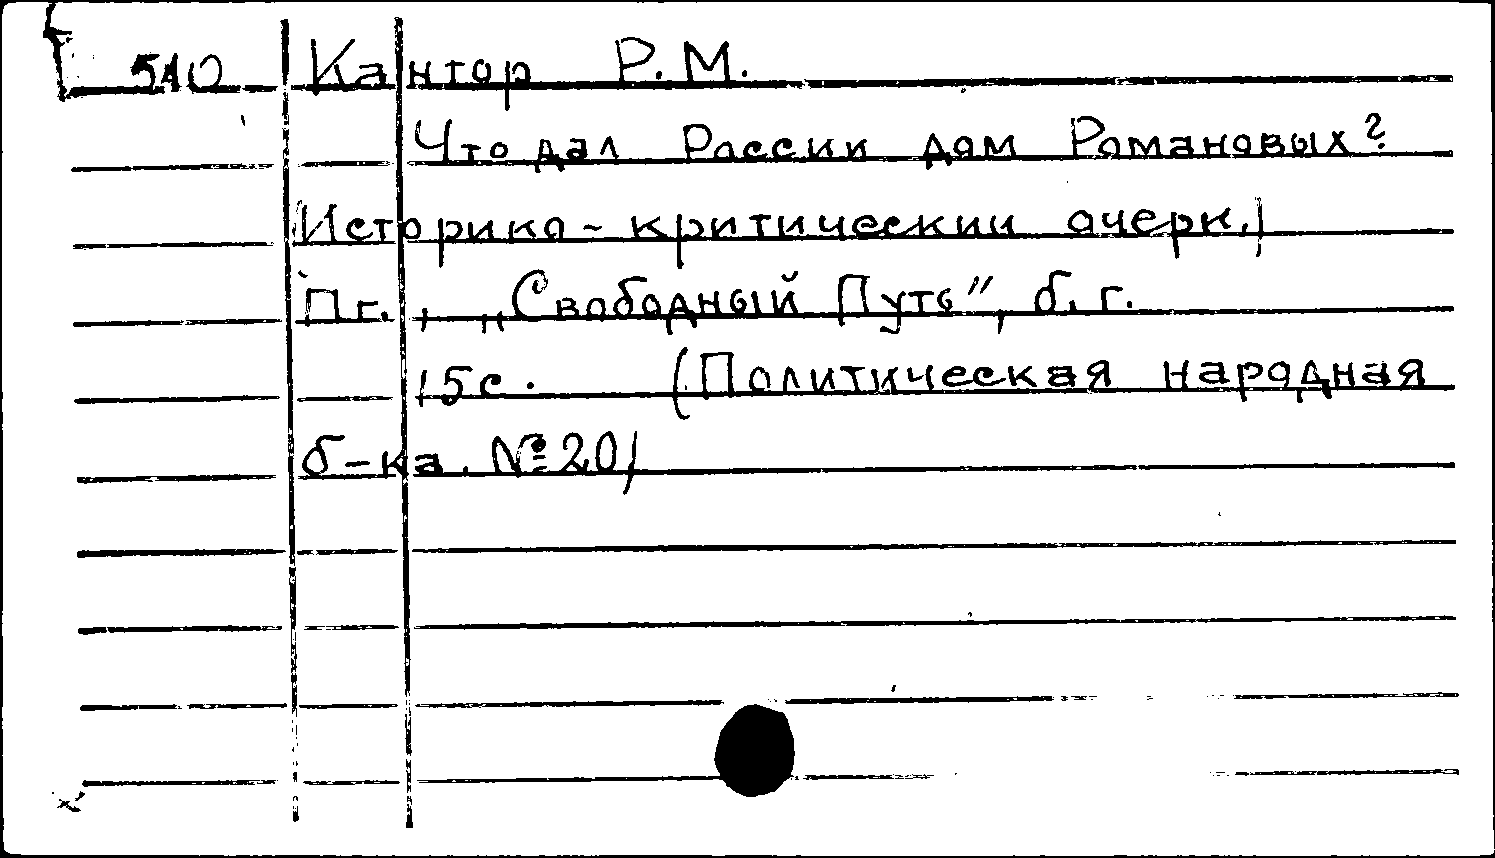 510 Кантор Р.М.
Что дал России дом Романовых?
(Историко-критический очерк.)
Пг., „Свободный Путь", б.г.
15с. (Политическая народная
б-ка. №20)